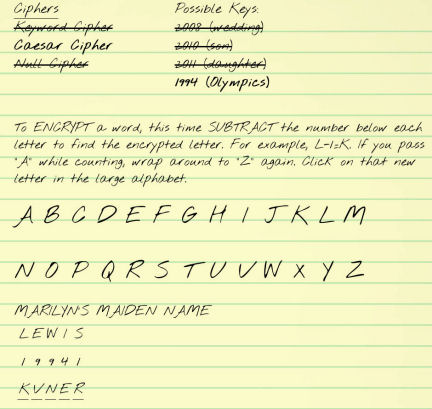 Ciphers Possible Keys:
Keyword Cipher 2008 (wedding)
Caesar Cipher 2010 (son)
Null Cipher 2011 (daughter)
1994 (Olympics)
To ENCRYPT a word, this time SUBTRACT the number below each
letter to find the encrypted letter. For example, L-1=K. If you pass
"A" while counting, wrap around to "Z" again. Click on that new
letter in the large alphabet.
A B C D E F G H I J K L M
N O P Q R S T U V W X Y Z
MARILYN'S MAIDEN NAME
L E W I S
1 9 9 4 1
K V N E R